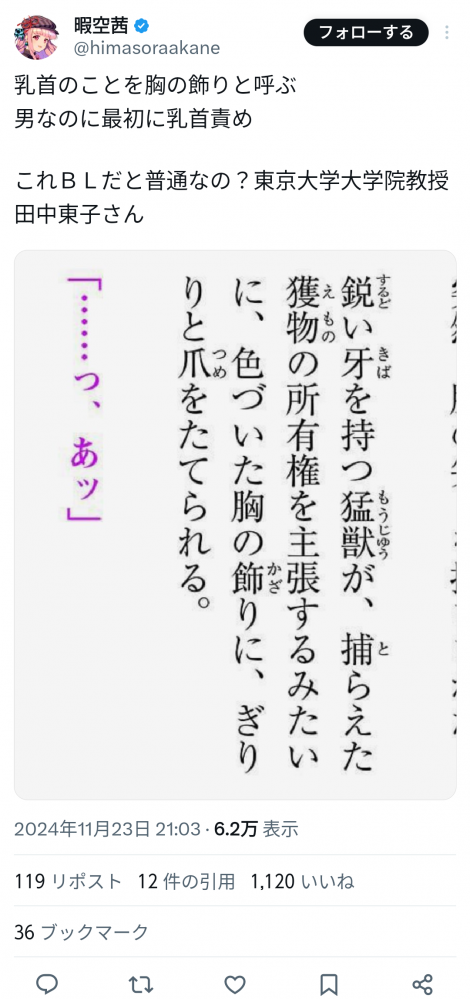 暇空茜
@himasoraakane
フォローする
乳首のことを胸の飾りと呼ぶ
男なのに最初に乳首責め
これＢＬだと普通なの？東京大学大学院教授
田中東子さん
鋭い牙を持つ猛獣が、捕らえた
獲物の所有権を主張するみたい
に、色づいた胸の飾りに、ぎり
りと爪をたてられる。
「……っ、あッ」
2024年11月23日 21:03 · 6.2万 表示
119 リポスト 12 件の引用 1,120 いいね
36 ブックマーク